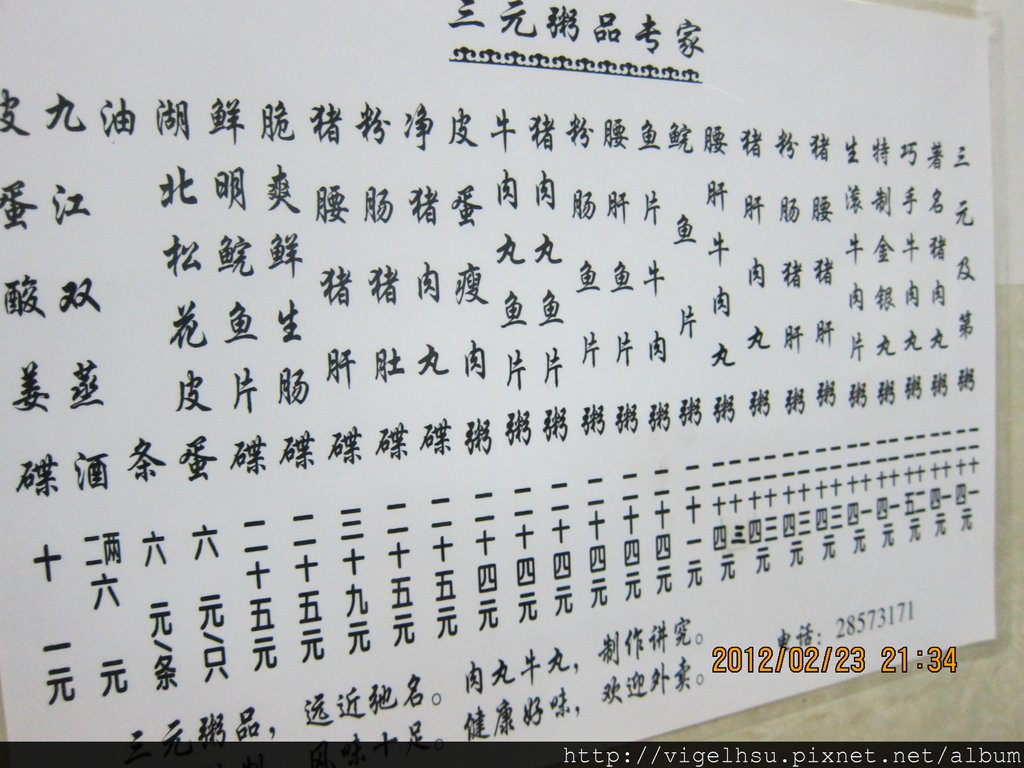 三元粥品专家
三元及第粥
著名猪肉丸粥
巧手牛肉丸粥
特制金银丸粥
生滚牛肉片粥
猪腰猪肝粥
粉肠猪肝粥
猪肝肉丸粥
腰肝牛肉丸粥
鲩鱼片粥 二十一元
鱼片牛肉粥 二十四元
腰肝鱼片粥 二十四元
粉肠鱼片粥 二十四元
猪肉丸鱼片粥 二十四元
牛肉丸鱼片粥 二十四元
皮蛋瘦肉粥 二十四元
净猪肉丸碟 二十五元
粉肠猪肚碟 二十五元
猪腰猪肝碟 三十九元
脆爽鲜生肠碟 二十五元
鲜明鲩鱼片碟 二十五元
湖北松花皮蛋 六元/只
油条 六元/条
九江双蒸酒 二两六元
皮蛋酸姜碟 十一元
三元粥品，远近弛名。肉丸牛丸，制作讲究。
风味十足。健康好味，欢迎外卖。
电话：28573171
2012/02/23 21:34
http://vigelhsu.pixnet.net/album